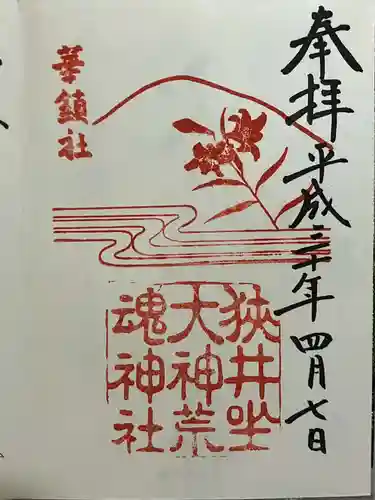 奉拝 平成三十年 四月七日
華鎮社
狭井坐
大神荒
魂神社